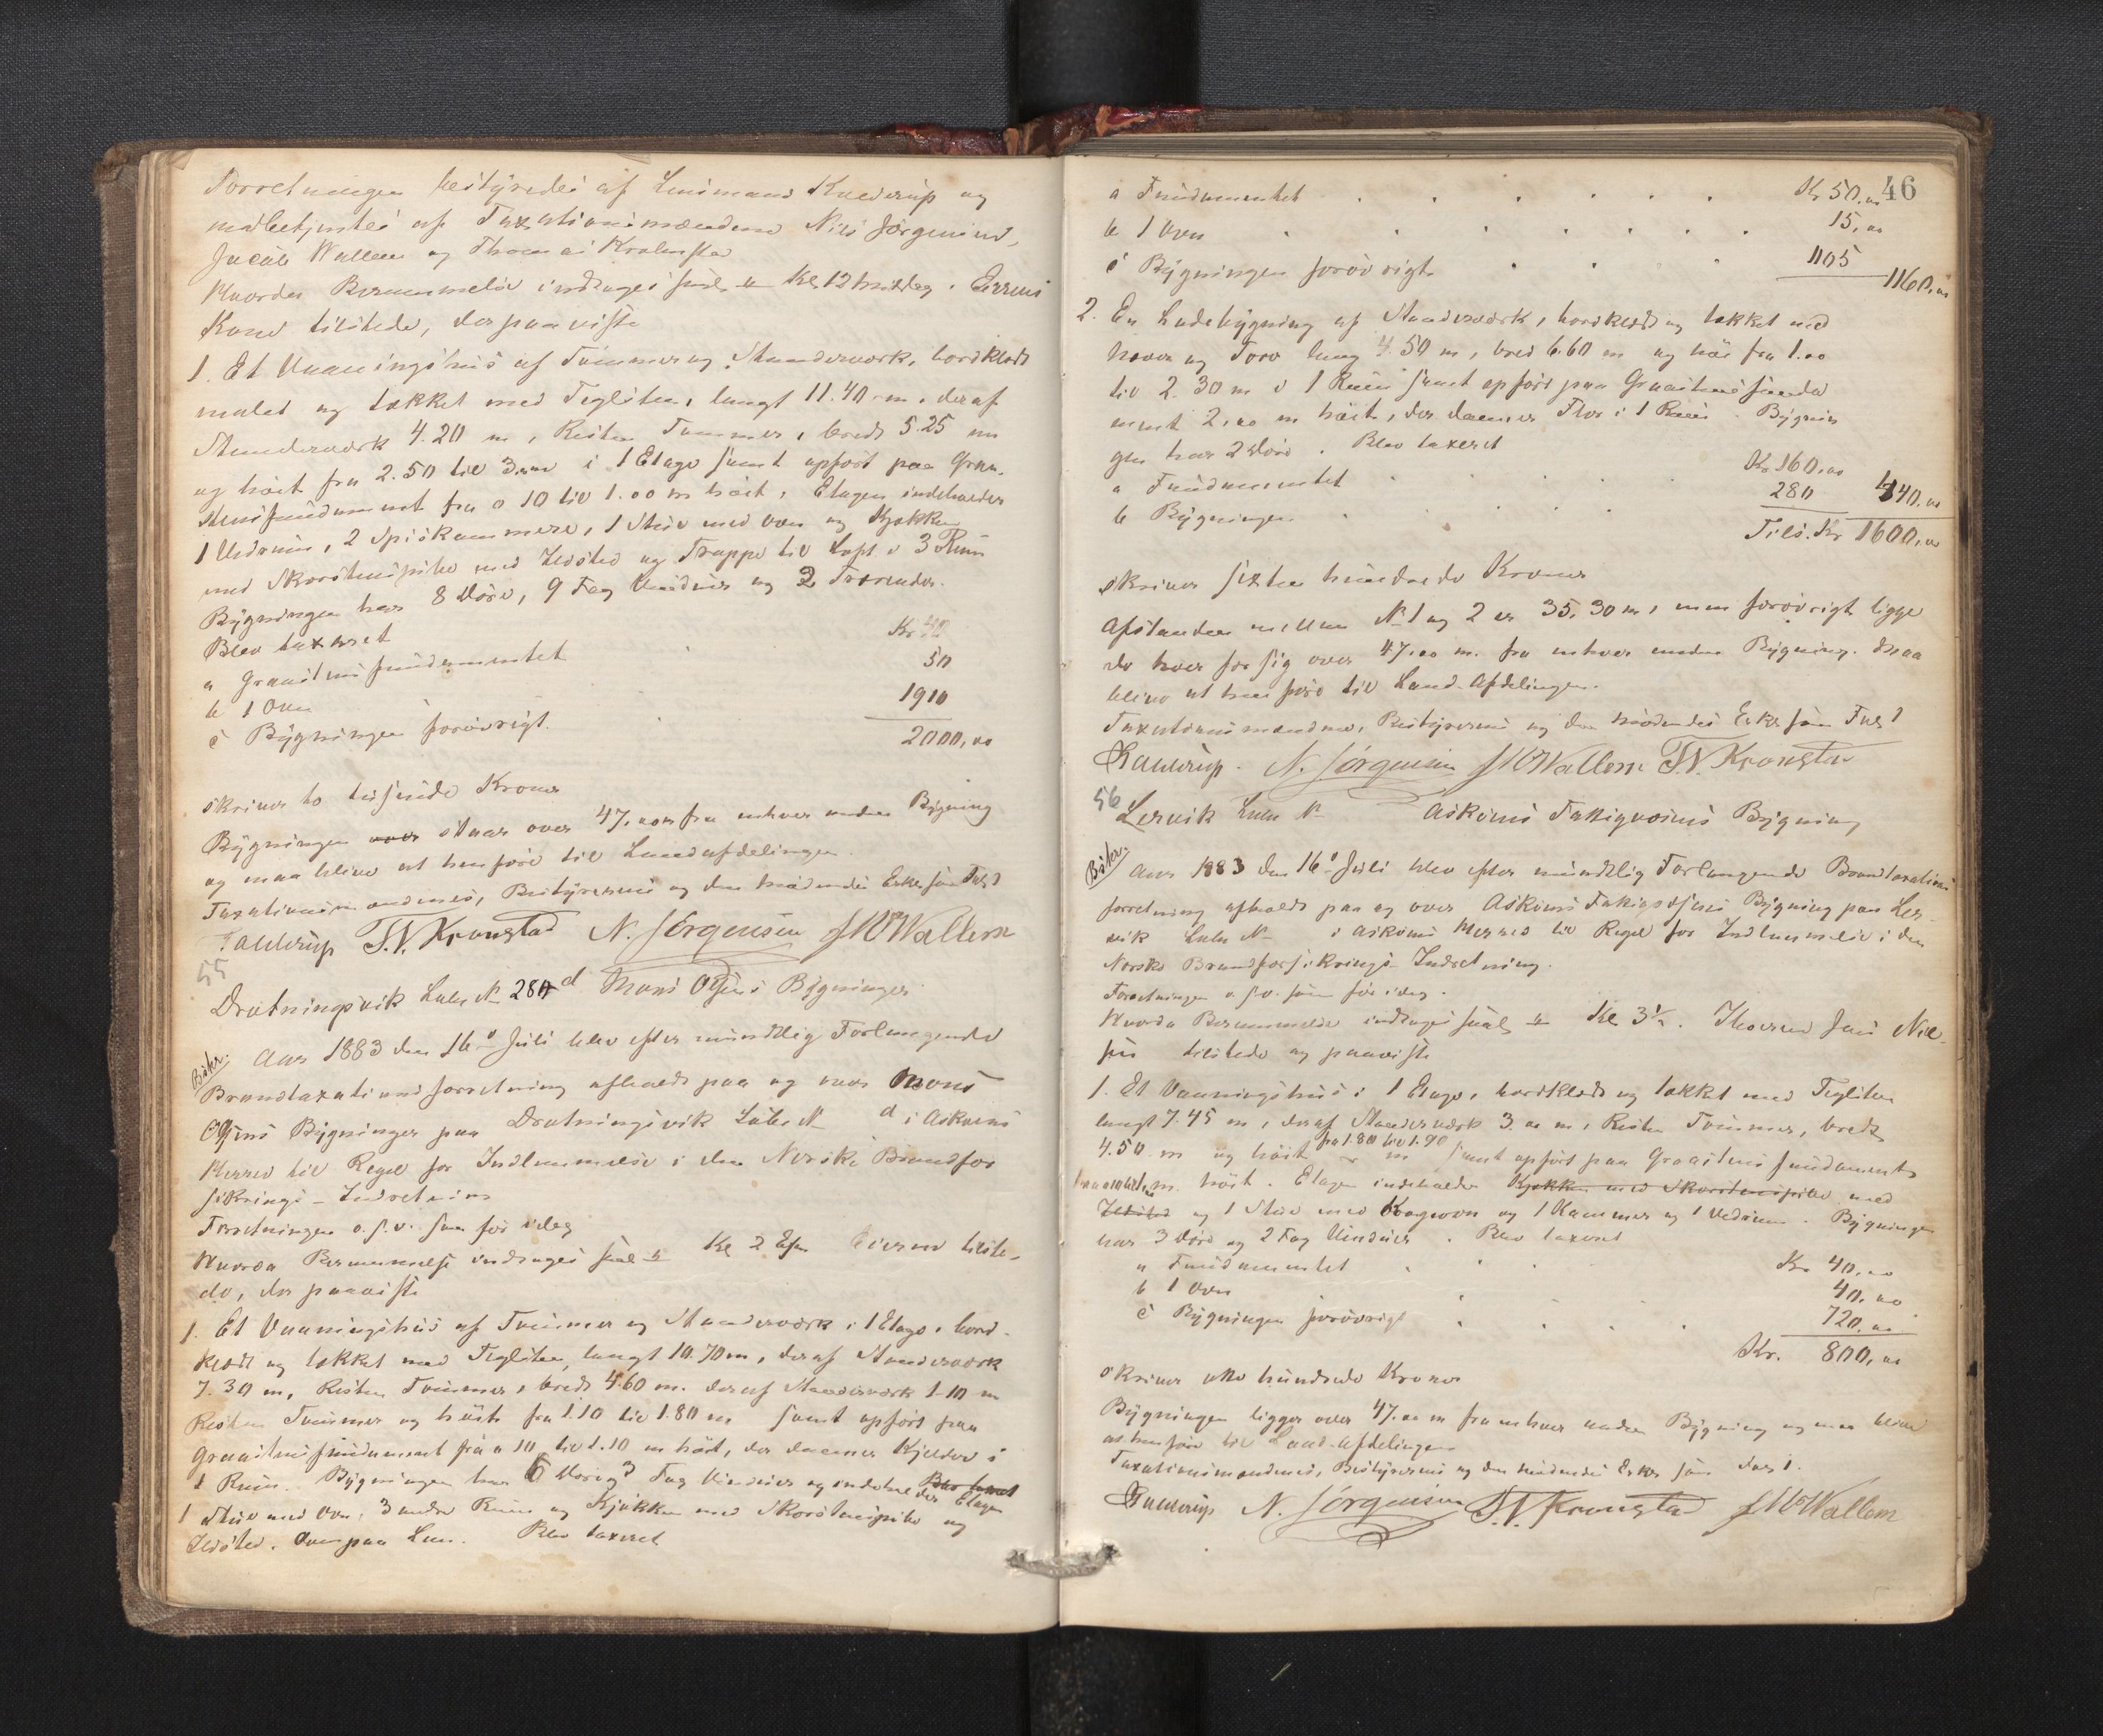 Forretningen bestyredes af Lensmand Kaldrup og
medbetjentes af Taxationsmændene Nils Jørgensen,
Jacob Wallem og Thomas Kronstad
Hvorda Berammelse indtages skal " Kl 12 Middag. Eierens
Kone tilstede, der paaviste
1. Et Vaaningshus af Tømmer og Stænderværk, bordklædt
malet og tækket med Teglsten, langt 11.40 m. deraf
Stænderværk 4.20 m, Resten Tømmer, bredt 5.25 m
og høit fra 2.50 til 3.00 i 1 Etage samt opført paa Graa-
stensfundament fra 0 10 til 1.00 m høit, Etagen indeholder
1 Vedrum, 2 Spiskammere, 1 Stue med Ovn og Kjøkken
med Skorstenspibe med Ildsted og Trappe til Loft i 3 Rum
Bygningen har 8 Døre, 9 Fag Vinduer og 2 Tagrender.
Blev taxeret
a Graastensfundamentet Kr 40
b 1 Ovn 50
c Bygningen forøvrigt. 1910
2000,00
skriver to tusinde Kroner
Bygningen over staar over 47,00 m fra enhver anden Bygning
og maa blive at henføre til Landafdelingen.
Taxationsmændenes, Bestyrerens og den mødendes Erkl som Fol 1
Kaldrup T.N. Kronstad N. Jørgensen JM Wallem
55
Drotningsvik Løbe No 280 d Mons Olsens Bygninger
Beskr.
Aar 1883 den 16de Juli blev efter mundtlig Forlangende
Brandtaxationsforretning afholdt paa og over Mons
Olsens Bygninger paa Drotningsvik Løbe No d i Askøens
Herred til Regel for Indlemmelse i den Norske Brandfor
sikrings-Indretning
Forretningen o.s.v. som før idag
Hvorda Berammelse indtages skal " Kl 2 Efm Eieren tilste-
de, der paaviste
1. Et Vaaningshus af Tømmer og Stænderværk i 1 Etage, bord-
klædt og tækket med Teglsten, langt 10.70 m, deraf Stænderværk
7.30 m, Resten Tømmer, bredt 4.60 m. deraf Stænderværk 1.10 m
Resten Tømmer og høit fra 1.10 til 1.80 m samt opført paa
Graastensfundament fra 0 10 til 2.10 m høit, der danner Kjelder i
1 Rum. Bygningen har 6 Døre og 3 Fag Vinduer og indeholder Etagen Blev taxeret
1 Stue med Ovn, 3 andre Rum og Kjøkken med Skorstenspibe og
Ildsted. Ovenpaa Lem. Blev taxeret
46
a Fundamentet Kr 50,00
b 1 Ovn 15,00
c Bygningen forøvrigt 1105 1160,00
2. En Ladebygning af Stænderværk, bordklædt og tækket med
Næver og Torv lang 9.50 m, bred 6.60 m og høi fra 1.00
til 2.30 m i 1 Rum samt opført paa Graastensfunda
ment 2.00 m høit, der danner Flor i 1 Rum. Bygnin
gen har 2 Døre. Blev taxeret
a Fundamentet Kr 160,00
b Bygningen 280 440,00
Tils. Kr 1600,00
skriver sexten hundrede Kroner
Afstanden mellem No 1 og 2 er 35,30 m, men forøvrigt ligge
de hver for sig over 47,00 m. fra enhver anden Bygning. Maa
blive at henføre til Land-Afdelingen.
Taxationsmændene, Bestyrerens og den mødendes Erkl som Fol 1
Kaldrup. N. Jørgensen JM Wallem T.N. Kronstad
56
Lervik Løbe No Askøens Fattigvæsens Bygning
Beskr.
Aar 1883 den 16de Juli blev efter mundtlig Forlangende Brandtaxations
forretning afholdt paa og over Askøens Fattigvæsens Bygning paa Ler-
vik Løbe No i Askøens Herred til Regel for Indlemmelse i den
Norske Brandforsikrings-Indretning.
Forretningen o.s.v. som før idag.
Hvorda Berammelse indtages skal " Kl 3½. Jens Niel-
sen tilstede og paaviste
1. Et Vaaningshus i 1 Etage, bordklædt og tækket med Teglsten
langt 7.45 m, deraf Stænderværk 3.00 m, Resten Tømmer, bredt
4.50 m og høit fra 1.80 til 1.90 m samt opført paa Graastens fundament
m. høit. Etagen indeholder Kjøkken med Skorstenspibe med
Ildsted og 1 Stue med Kogeovn og 1 Kammer og 1 Vedrum. Bygningen
har 3 Døre og 2 Fag Vinduer. Blev taxeret
a Fundamentet Kr 40,00
b 1 Ovn 40,00
c Bygningen forøvrigt 720,00
Kr. 800,00
skriver otte hundrede Kroner
Bygningen ligger over 47,00 m fra enhver anden Bygning og maa blive
at henføre til Land-Afdelingen
Taxationsmændenes, Bestyrerens og den mødendes Erkl som Fol 1.
Kaldrup N. Jørgensen T.N. Kronstad JM Wallem